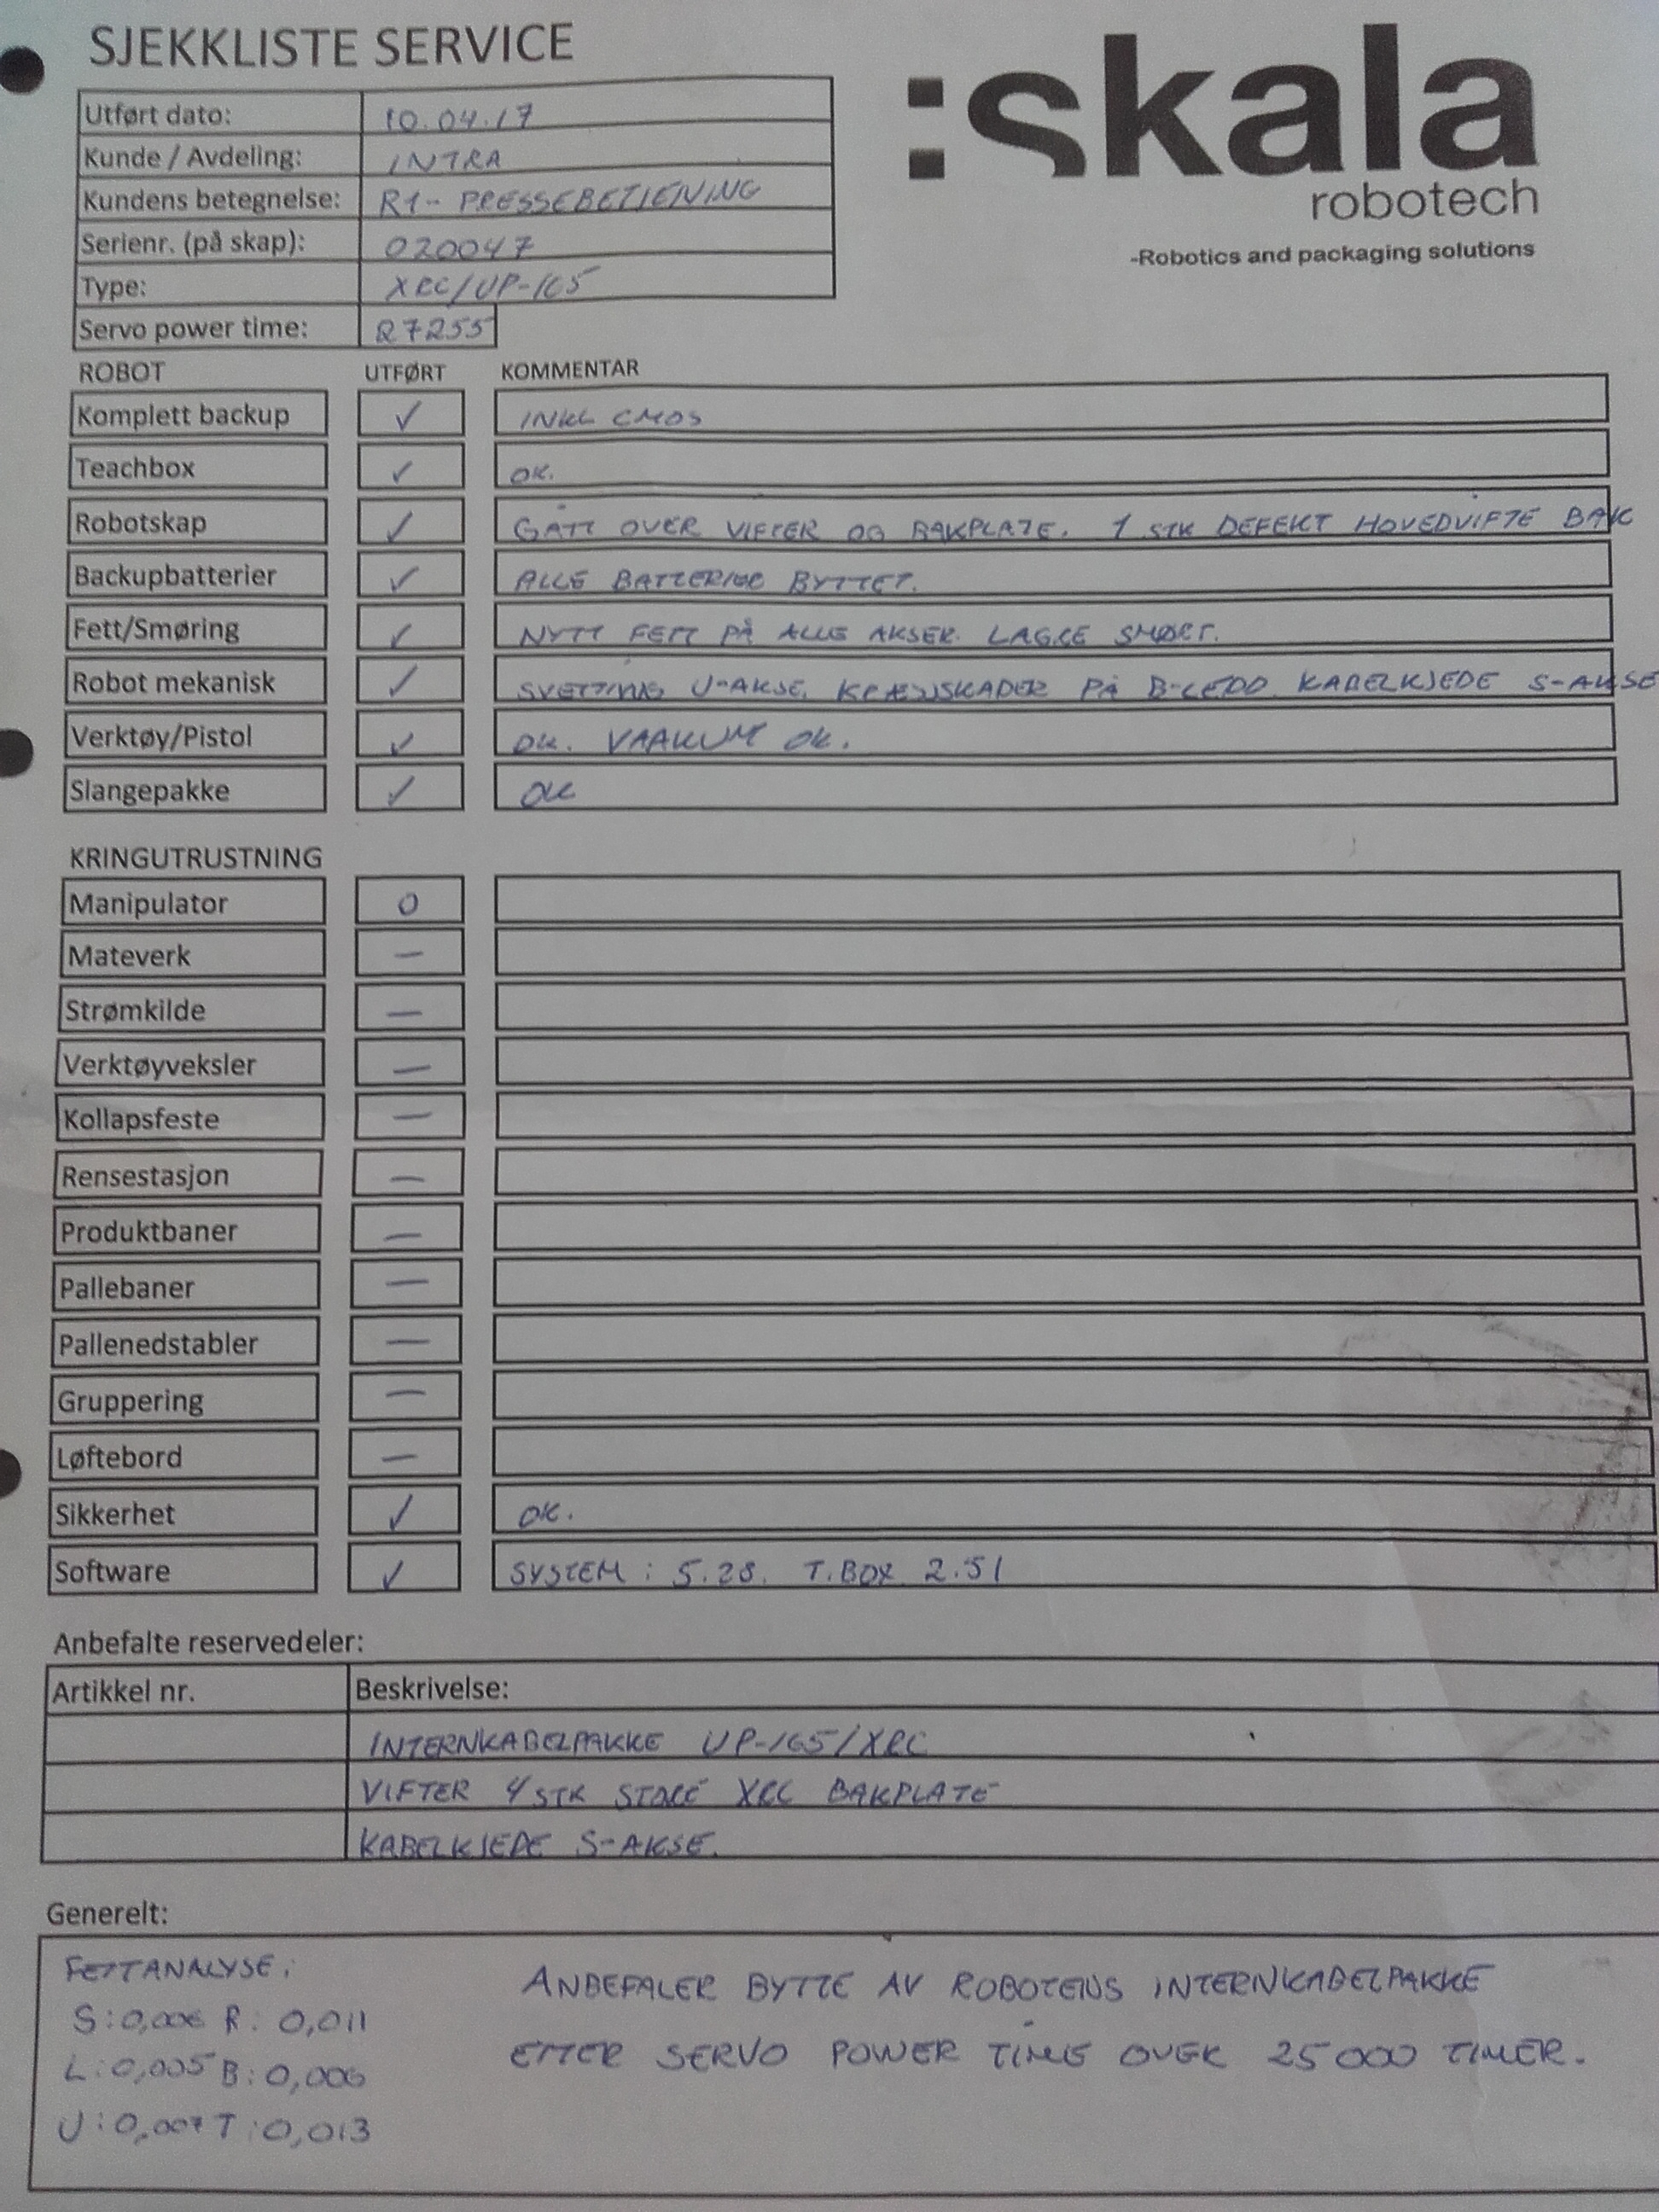 SJEKKLISTE SERVICE
:skala
robotech
-Robotics and packaging solutions
Utført dato: 10.04.17
Kunde / Avdeling: INTRA
Kundens betegnelse: R1- PRESSEBETJENING
Serienr. (på skap): 020047
Type: XRC/UP-165
Servo power time: 27255
ROBOT UTFØRT KOMMENTAR
Komplett backup ✓ INKL CMOS
Teachbox ✓ OK.
Robotskap ✓ GÅTT OVER VIFTER OG BAKPLATE. 1 STK DEFEKT HOVEDVIFTE BAK
Backupbatterier ✓ ALLE BATTERIER BYTTET.
Fett/Smøring ✓ NYTT FETT PÅ ALLE AKSER. LAGRE SMØRT.
Robot mekanisk ✓ SVETTING U-AKSE. KRÆSJSKADER PÅ B-LEDD. KABELKJEDE S-AKSE
Verktøy/Pistol ✓ OK. VAAKUM OK.
Slangepakke ✓ OK
KRINGUTRUSTNING
Manipulator O
Mateverk —
Strømkilde —
Verktøyveksler —
Kollapsfeste —
Rensestasjon —
Produktbaner —
Pallebaner —
Pallenedstabler —
Gruppering —
Løftebord —
Sikkerhet ✓ OK.
Software ✓ SYSTEM : 5.28. T.BOX 2.51
Anbefalte reservedeler:
Artikkel nr. Beskrivelse:
INTERNKABELPAKKE UP-165/XRC
VIFTER 4 STK STORE XRC BAKPLATE
KABELKJEDE S-AKSE.
Generelt:
FETTANALYSE:
S:0,006 R: 0,011
L:0,005 B:0,006
U:0,007 T:0,013
ANBEFALER BYTTE AV ROBOTENS INTERNKABELPAKKE
ETTER SERVO POWER TIME OVER 25000 TIMER.